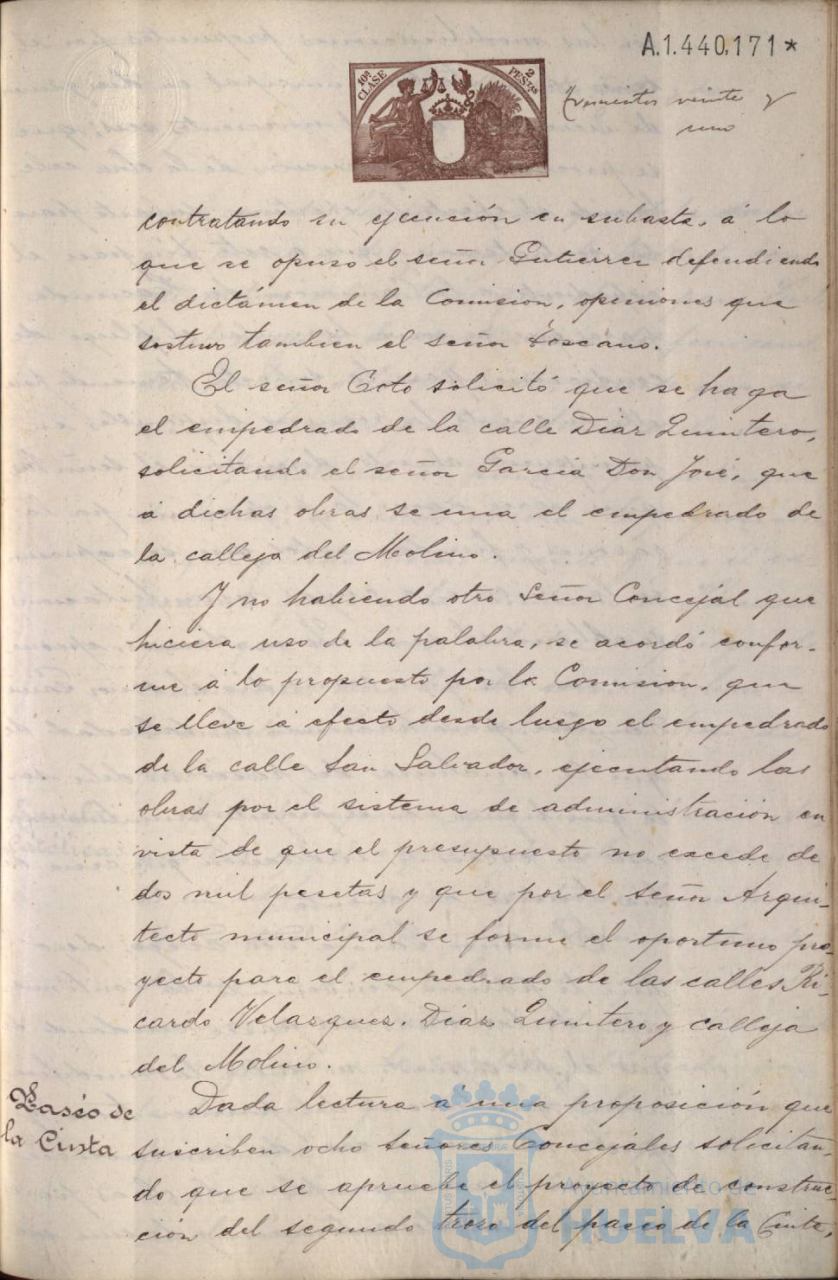 A.1.440.171*
10ª CLASE
2 PESETAS
trescientos veinte y
uno
contratando su ejecución en subasta, á lo
que se opuso el señor Gutierrez defendiendo
el dictámen de la Comision, opiniones que
sostuvo tambien el señor Toscano.
El señor Coto solicitó que se haga
el empedrado de la calle Diaz Quintero,
solicitando el señor Garcia Don José, que
á dichas obras se una el empedrado de
la calleja del Molino.
Y no habiendo otro Señor Concejal que
hiciera uso de la palabra, se acordó confor-
me á lo propuesto por la Comision, que
se lleve á efecto desde luego el empedrado
de la calle San Salvador, ejecutando las
obras por el sistema de administración en
vista de que el presupuesto no excede de
dos mil pesetas y que por el señor Arqui-
tecto municipal se forme el oportuno pro-
yecto para el empedrado de las calles Ri-
cardo Velazquez, Diaz Quintero y calleja
del Molino.
Paséo de
la Cinta
Dada lectura á una proposición que
suscriben ocho señores Concejales solicitan-
do que se apruebe el proyecto de construc-
ción del segundo trozo del paseo de la Cinta,
Ayuntamiento de
HUELVA